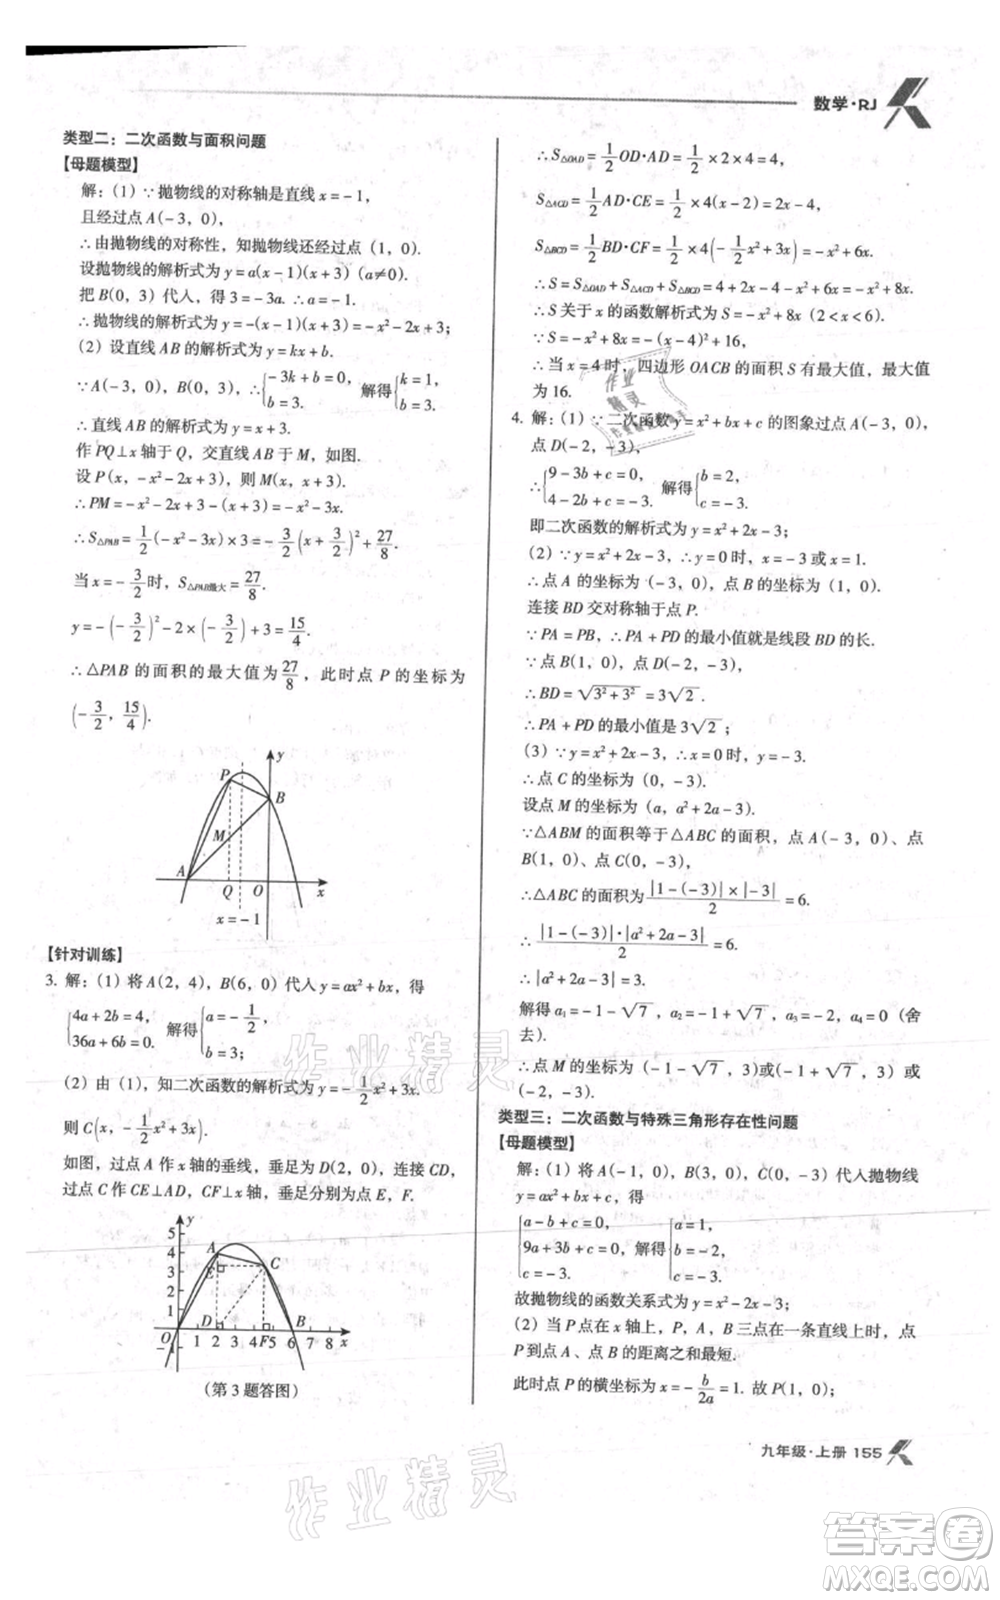 数学·RJ
类型二：二次函数与面积问题
【母题模型】
解：（1）∵抛物线的对称轴是直线 x=-1，
且经过点 A(-3，0)，
∴由抛物线的对称性，知抛物线还经过点（1，0）.
设抛物线的解析式为 y=a(x-1)(x+3) (a≠0).
把 B(0，3) 代人，得 3=-3a. ∴a=-1.
∴抛物线的解析式为 y=-(x-1)(x+3)=-x²-2x+3；
（2）设直线 AB 的解析式为 y=kx+b.
∵A(-3，0)，B(0，3)，∴{-3k+b=0，b=3. 解得{k=1，b=3.
∴直线 AB 的解析式为 y=x+3.
作 PQ⊥x 轴于 Q，交直线 AB 于 M，
设 P(x，-x²-2x+3)，则 M(x，x+3).
∴PM=-x²-2x+3-(x+3)=-x²-3x.
∴S△PAB=1/2(-x²-3x)×3=-3/2(x+3/2)²+27/8.
当 x=-3/2时，S△PAB最大=27/8，
y=-(-3/2)²-2×(-3/2)+3=15/4.
∴△PAB 的面积的最大值为27/8，此时点 P 的坐标为
(-3/2，15/4).
y
P
B
M
A
Q O x
x=-1
【针对训练】
3. 解：（1）将 A(2，4)，B(6，0) 代人 y=ax²+bx，得
{4a+2b=4，36a+6b=0. 解得{a=-1/2，b=3；
（2）由（1），知二次函数的解析式为 y=-1/2x²+3x.
则 C(x，-1/2x²+3x).
如图，过点 A 作 x 轴的垂线，垂足为 D(2，0)，连接 CD，
过点 C 作 CE⊥AD，CF⊥x 轴，垂足分别为点 E，F.
y
5
4
3
2
1
-1
A
E
C
D
B
O 1 2 3 4F5 6 7 8 x
（第 3 题答图）
∴S△OAD=1/2OD·AD=1/2×2×4=4，
S△ACD=1/2AD·CE=1/2×4(x-2)=2x-4，
S△BCD=1/2BD·CF=1/2×4(-1/2x²+3x)=-x²+6x.
∴S=S△OAD+S△ACD+S△BCD=4+2x-4-x²+6x=-x²+8x.
∴S 关于 x 的函数解析式为 S=-x²+8x (2<x<6).
∵S=-x²+8x=-(x-4)²+16，
∴当 x=4 时，四边形 OACB 的面积 S 有最大值，最大值
为 16.
4. 解：（1）∵二次函数 y=x²+bx+c 的图象过点 A(-3，0)，
点 D(-2，-3)，
∴{9-3b+c=0，4-2b+c=-3. 解得{b=2，c=-3.
即二次函数的解析式为 y=x²+2x-3；
（2）∵y=x²+2x-3，∴y=0 时，x=-3 或 x=1.
∴点 A 的坐标为（-3，0），点 B 的坐标为（1，0）.
连接 BD 交对称轴于点 P.
∵PA=PB，∴PA+PD 的最小值就是线段 BD 的长.
∵点 D(-2，-3)，点 B(1，0)，
∴BD=√(3²+3²)=3√2.
∴PA+PD 的最小值是 3√2；
（3）∵y=x²+2x-3，∴x=0 时，y=-3.
∴点 C 的坐标为（0，-3）.
设点 M 的坐标为（a，a²+2a-3）.
∵△ABM 的面积等于△ABC 的面积，点 A(-3，0)，点
B(1，0)，点 C(0，-3)，
∴△ABC 的面积为|1-(-3)|×|-3|/2=6.
∴|1-(-3)|·|a²+2a-3|/2=6.
∴|a²+2a-3|=3.
解得 a₁=-1-√7，a₂=-1+√7，a₃=-2，a₄=0（舍
去）.
∴点 M 的坐标为（-1-√7，3）或（-1+√7，3）或
（-2，-3）.
类型三：二次函数与特殊三角形存在性问题
【母题模型】
解：（1）将 A(-1，0)，B(3，0)，C(0，-3) 代人抛物线
y=ax²+bx+c，得
{a-b+c=0，9a+3b+c=0，c=-3. 解得{a=1，b=-2，c=-3.
故抛物线的函数关系式为 y=x²-2x-3；
（2）当 P 点在 x 轴上，P，A，B 三点在一条直线上时，点
P 到点 A、点 B 的距离之和最短.
此时点 P 的横坐标为 x=-b/2a=1. 故 P(1，0)；
九年级·上册 155
作业精灵
作业精灵
作业精灵
答案卷
MXQE.COM